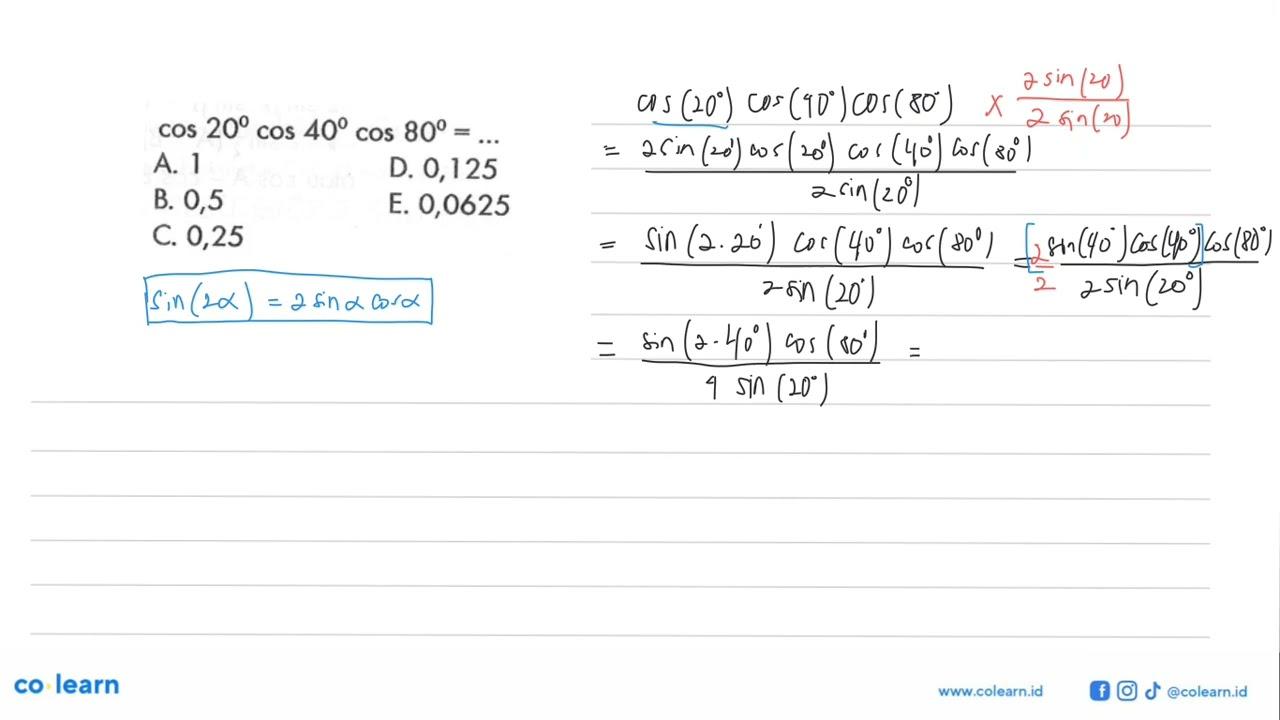 cos 20⁰ cos 40⁰ cos 80⁰ = ...
A. 1
B. 0,5
C. 0,25
D. 0,125
E. 0,0625
sin(2α) = 2 sin α cos α
cos(20°) cos(40°) cos(80°) × 2 sin(20) / 2 sin(20)
= 2 sin(20°) cos(20°) cos(40°) cos(80°) / 2 sin(20°)
= sin(2.20°) cos(40°) cos(80°) / 2 sin(20°) = 2/2 [sin(40°) cos(40°)] cos(80°) / 2 sin(20°)
= sin(2.40°) cos(80°) / 4 sin(20°) =
co·learn
www.colearn.id
@colearn.id